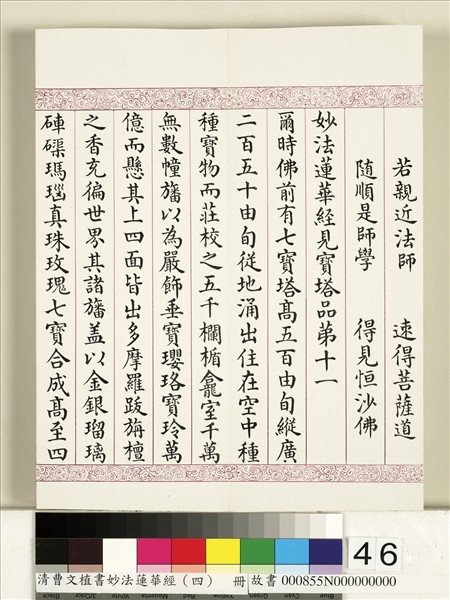 若親近法師 速得菩薩道
隨順是師學 得見恒沙佛
妙法蓮華經見寶塔品第十一
爾時佛前有七寶塔高五百由旬縱廣
二百五十由旬從地涌出住在空中種
種寶物而莊校之五千欄楯龕室千萬
無數幢旛以為嚴飾垂寶瓔珞寶玲萬
億而懸其上四面皆出多摩羅跋旃檀
之香充徧世界其諸旛盖以金銀瑠璃
硨磲瑪瑙真珠玫瑰七寶合成高至四
46
清曹文植書妙法蓮華經(四) 冊 故書 000855N000000000